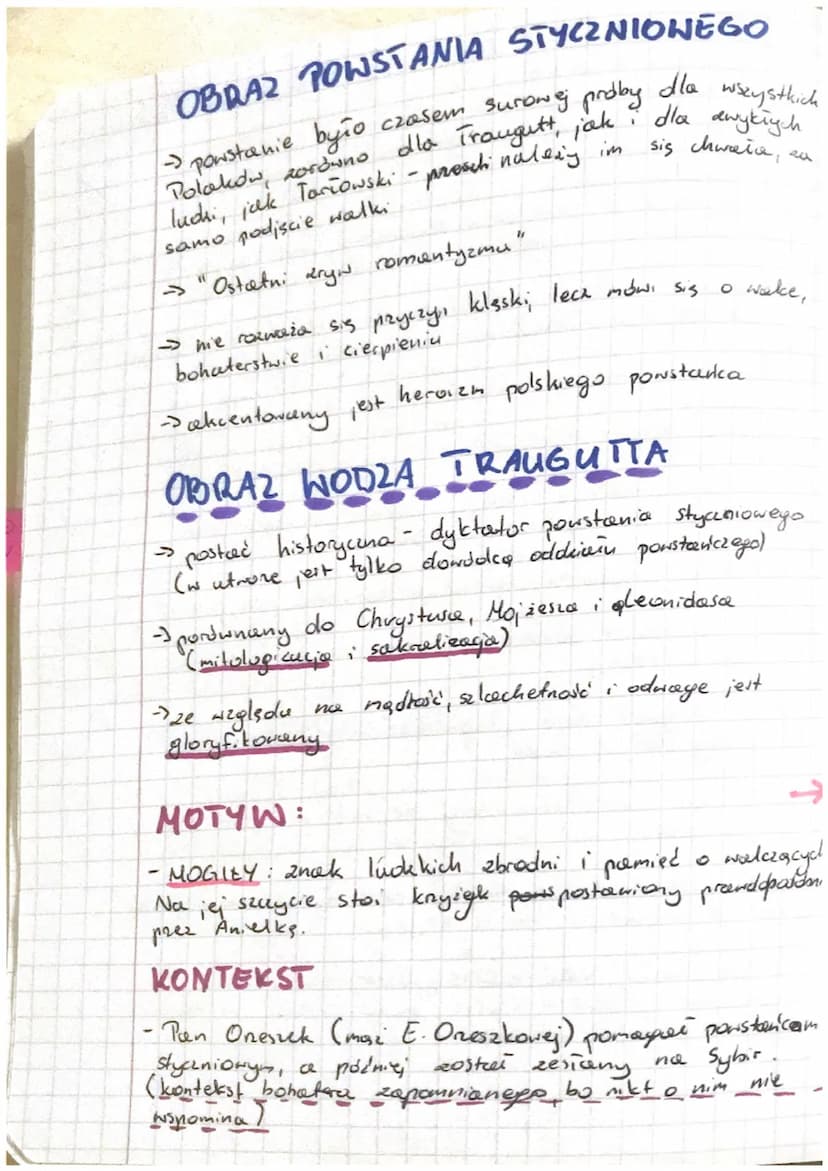 OBRAZ POWSTANIA STYCZNIOWEGO
→ powstanie było czasem surowej próby dla wszystkich
Polaków, zarówno dla Traugutt, jak i dla zwykłych
ludzi, jak Tarłowski - należy im się chwała, za
samo podjęcie walki
→ "Ostatni zryw romantyzmu"
→ nie rozważa się przyczyn klęski, lecz mówi się o walce,
bohaterstwie i cierpieniu
→ akcentowany jest heroizm polskiego powstańca
OBRAZ WODZA TRAUGUTTA
→ postać historyczna - dyktator powstania styczniowego
(w utworze jest tylko dowódcą oddziału powstańczego)
→ porównany do Chrystusa, Mojżesza i Leonidasa
(mitologizacja i sakralizacja)
→ ze względu na mądrość, szlachetność i odwagę jest
gloryfikowany
MOTYW:
- MOGIŁY: znak ludzkich zbrodni i pamięć o walczących
Na jej szczycie stoi krzyżyk postawiony
przez Anielkę.
KONTEKST
- Pan Orzeszek (mąż E. Orzeszkowej) pomagał powstańcom
styczniowym, a później został zesłany na Sybir.
(kontekst bohatera zapomnianego, bo nikt o nim nie
wspomina)